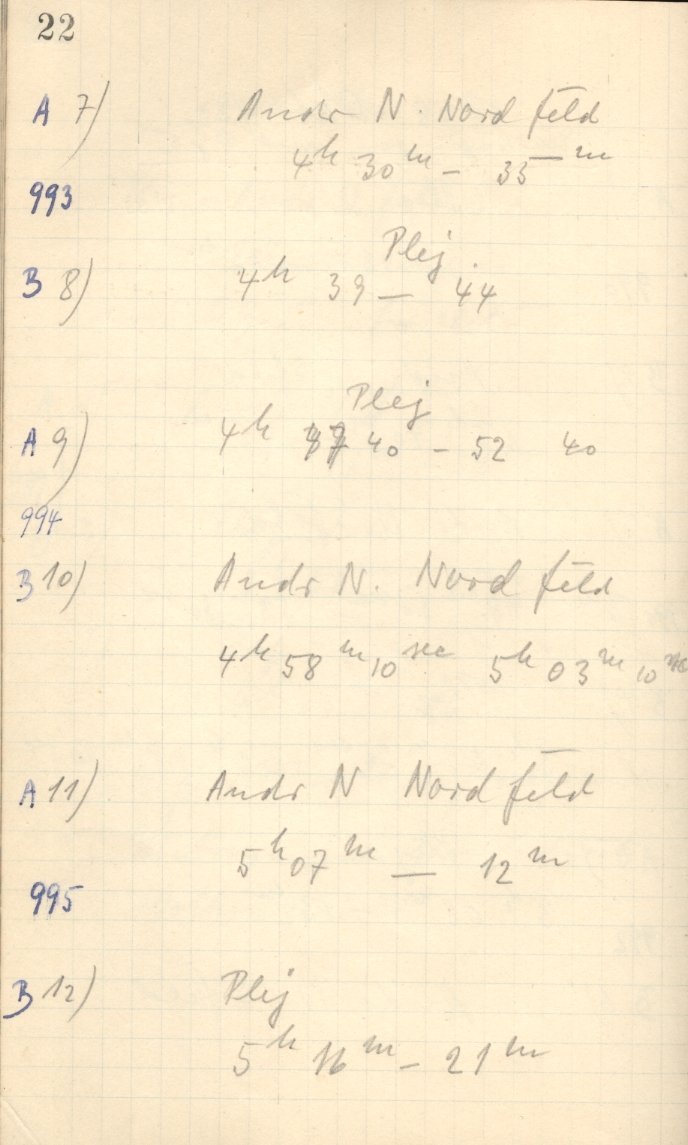 22
A 7) Andr N. Nord feld
4h 30m – 35m
993
Plej.
B 8) 4h 39 – 44
Plej
A 9) 4h 47 40 – 52 40
994
B 10) Andr N. Nord feld
4h 58m 10sec 5h 03m 10sec
A 11) Andr N Nord feld
5h 07m – 12m
995
B 12) Plej
5h 16m – 21m